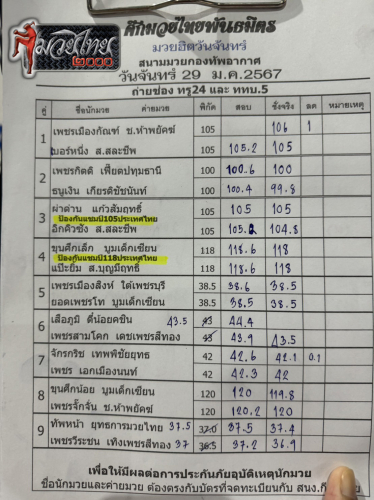 มวยไทย
๒๐๐๐
ศึกมวยไทยพันธมิตร
มวยฮิตวันจันทร์
สนามมวยกองทัพอากาศ
วันจันทร์ 29 ม.ค.2567
ถ่ายช่อง ทรู24 และ ททบ.5
คู่ ชื่อนักมวย ค่ายมวย พิกัด สอบ ชั่งจริง ลด หมายเหตุ
1 เพชรเมืองกัณฑ์ ช.ห้าพยัคฆ์ 105 106 1
เบอร์หนึ่ง ส.สละชีพ 105.2 105
2 เพชรกิตติ เฟื่อดปทุมธานี 100 100.6 100
ธนูเงิน เกียรติชัชนันท์ 100.4 99.8
3 ผ่าด่าน แก้วสัมฤทธิ์ 105 105 105
ป้องกันแชมป์105ประเทศไทย
อิกคิวซัง ส.สละชีพ 105.2 104.8
4 ขุนศึกเล็ก บูมเด็กเซียน 118 118.6 118
ป้องกันแชมป์118ประเทศไทย
แป๊ะยิ้ม ส.บุญมีฤทธิ์ 118.6 118
5 เพชรเมืองสิงห์ ใต้เพชรบุรี 38.5 38.6 38.5
ยอดเพชรโท บูมเด็กเซียน 38.5 38.5
6 เสือภูมิ ตี๋น้อยคชิน 43.5 43 44.4
เพชรสามโคก เดชเพชรสีทอง 43 43.9 43.5
7 จักรกริช เทพพิชัยยุทธ 42 42.6 42.1 0.1
เพชร เอกเมืองนนท์ 42.3 42
8 ขุนศึกน้อย บูมเด็กเซียน 120 120 119.8
เพชรจั๊กจั่น ช.ห้าพยัคฆ์ 120.2 120
9 ทัพหน้า ยุทธการมวยไทย 37.5 37.0 37.5 37.4
เพชรวีระชน เทิงเพชรสีทอง 37 36.5 37.2 36.9
เพื่อให้มีผลต่อการประกันภัยอุบัติเหตุนักมวย
ชื่อนักมวยและค่ายมวย ต้องตรงกับบัตรที่จดทะเบียนกับ สนง.